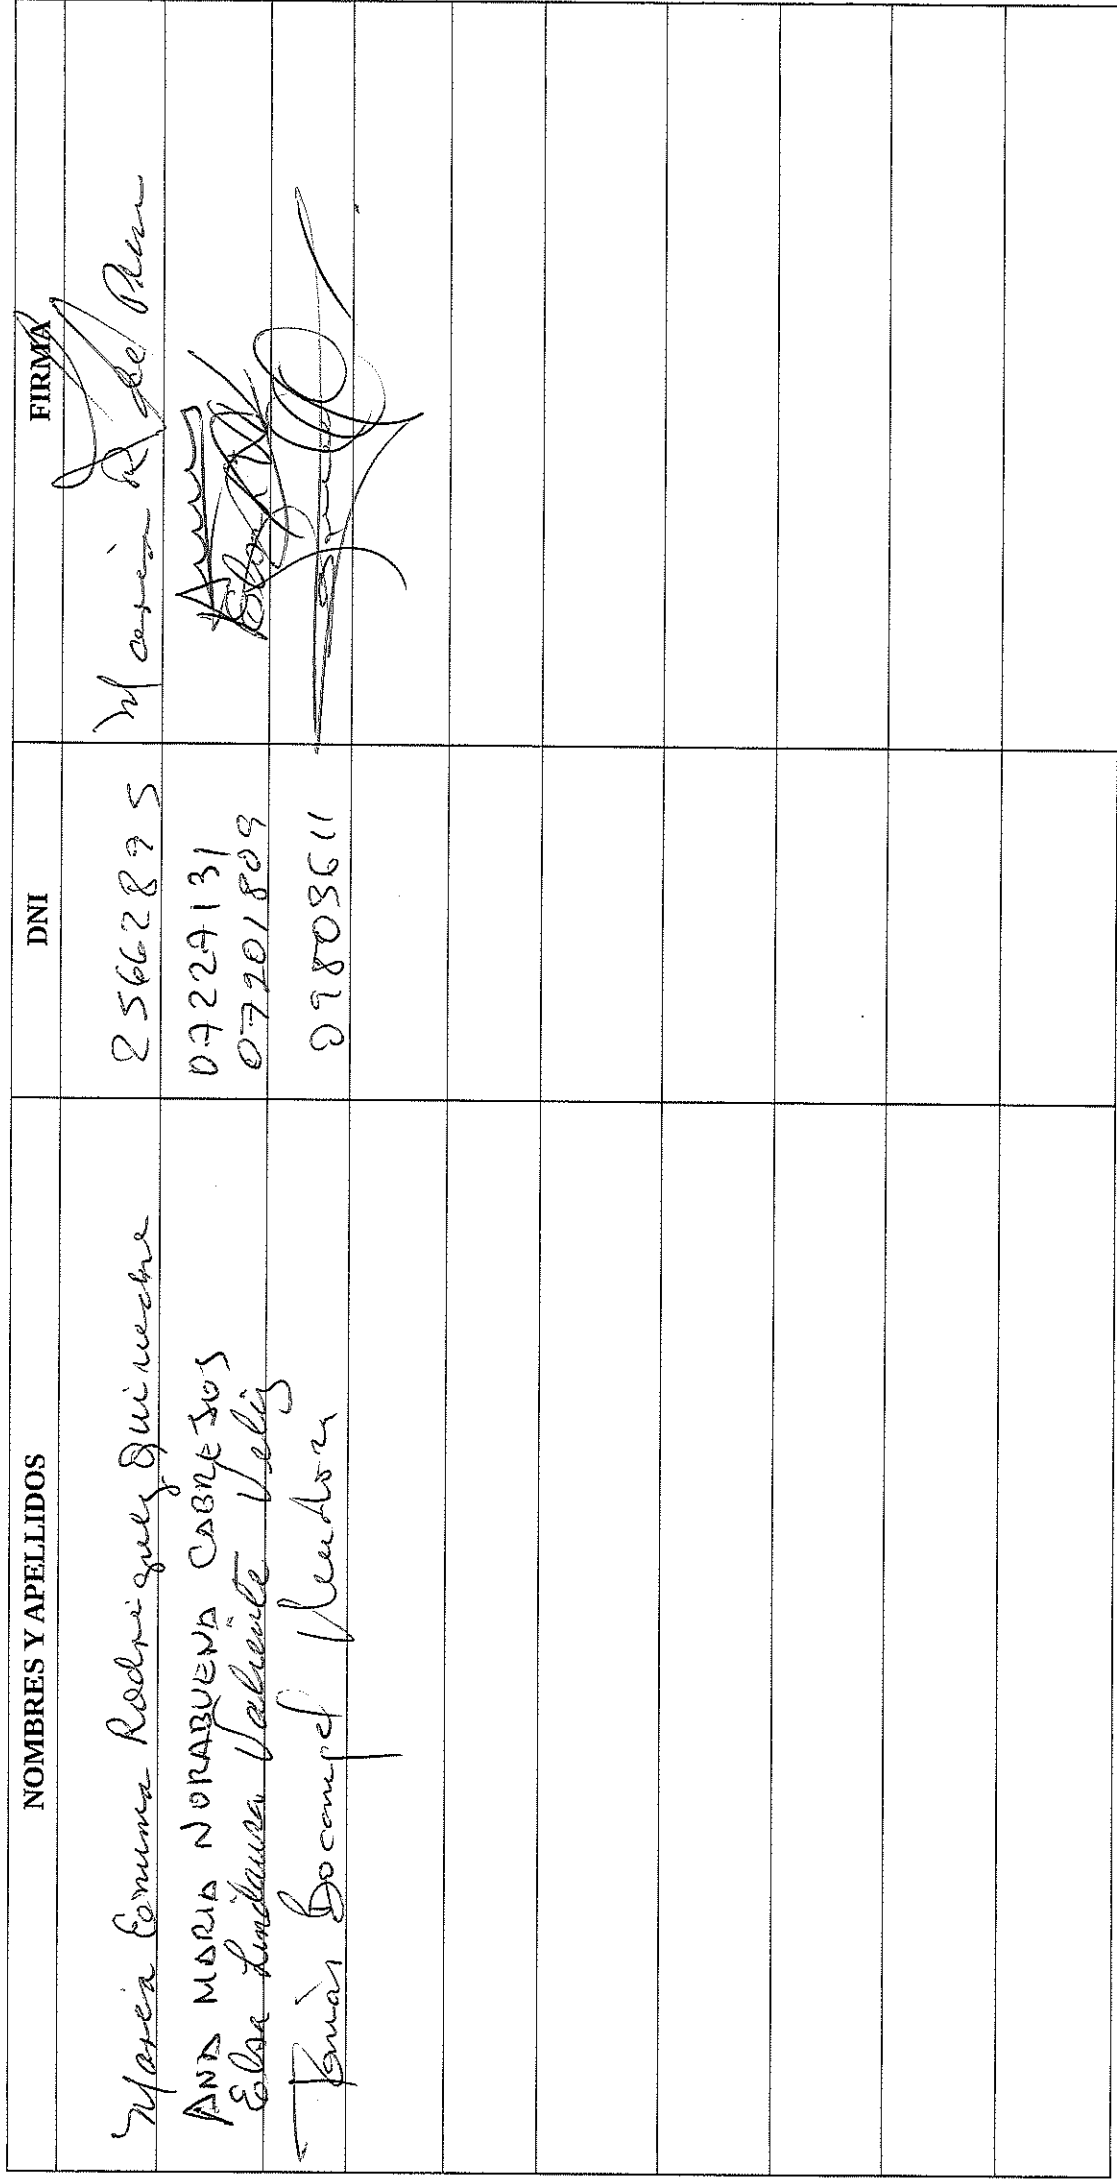 NOMBRES Y APELLIDOS DNI FIRMA
María Emma Rodríguez 25662895 María R de
ANA MARIA NORABUENA CABREJOS 07227131
Elsa Lindaura Valiente Veliz 07901809 Elsa
Tomás Docampo 09803611